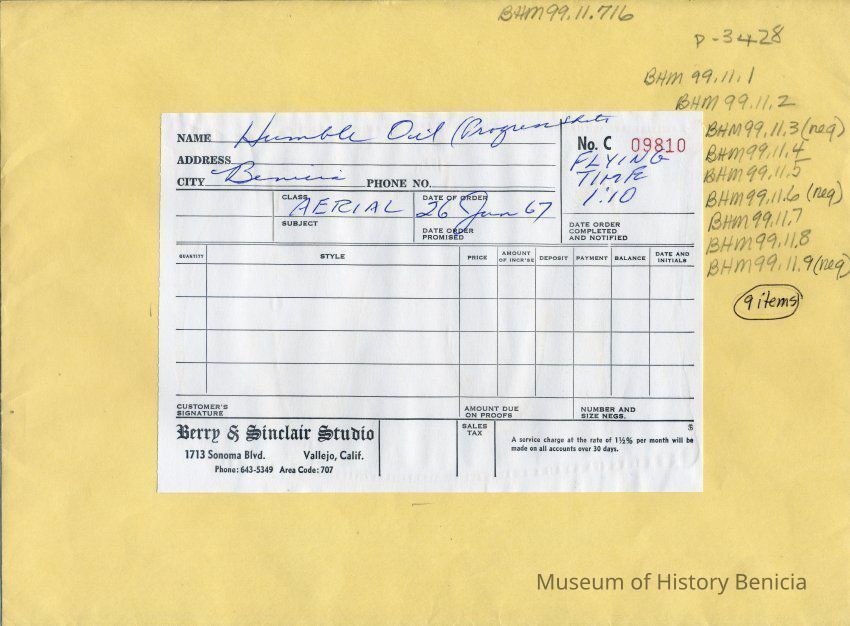 BHM99.11.716
P-3428
BHM 99.11.1
BHM 99.11.2
BHM99.11.3(neg)
BHM99.11.4
BHM99.11.5
BHM99.11.6 (neg)
BHM99.11.7
BHM99.11.8
BHM99.11.9(neg)
9 items
NAME Humble Oil (Progress Shots
No. C 09810
ADDRESS
FLYING
TIME
1:10
CITY Benicia PHONE NO.
CLASS AERIAL
DATE OF ORDER 26 Jun 67
SUBJECT
DATE ORDER
PROMISED
DATE ORDER
COMPLETED
AND NOTIFIED
QUANTITY STYLE PRICE AMOUNT OF INCR'SE DEPOSIT PAYMENT BALANCE DATE AND INITIALS
CUSTOMER'S
SIGNATURE
AMOUNT DUE
ON PROOFS
NUMBER AND
SIZE NEGS.
Berry & Sinclair Studio
1713 Sonoma Blvd. Vallejo, Calif.
Phone: 643-5349 Area Code: 707
SALES
TAX
$
A service charge at the rate of 1½% per month will be
made on all accounts over 30 days.
Museum of History Benicia